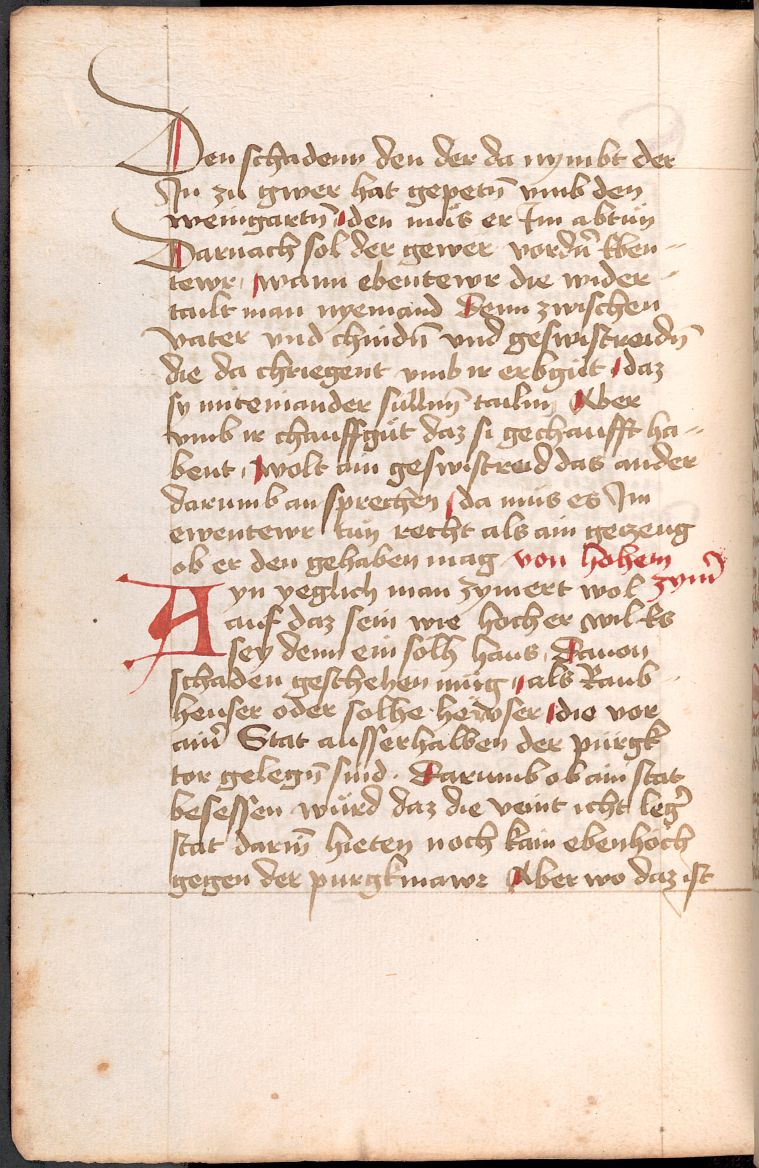 Den schadenn den der da nymbt der
In zu gwer hat gepetn̄ vmb den
weingartn̄ den mus er Im abtün
Darnach sol der gewer vordn̄ Eben-
tewr wann ebentewr die wider
tailt man nyemand Denn zwischen
vater vnd chindn̄ vnd geswistreidn̄
die da chriegent vmb ir erbgüt daz
sy miteinander süllnn̄ tailn Aber
vmb ir chauffgüt daz si gechaufft ha-
bent wolt ain geswistreid das ander
darumb an sprechen da mus es Im
ewentewr tün recht als ain gezeng
ob er den gehaben mag von hohem
Ayn yeglich man zymert wol zym̄
auf daz sein wie hoch er wil Es
sey denn ein solh haus Dauon
schaden geschehen müg als Raub
heuser oder solhe hewser die vor
ain̄ Stat ausserhalben der pürgk
tor gelegn̄ sind Darumb ob ain stat
besessen würd daz die veint icht leḡ
stat darin̄ hieten noch kain ebenhöch
gegen der purgkmawr Aber wo daz ist